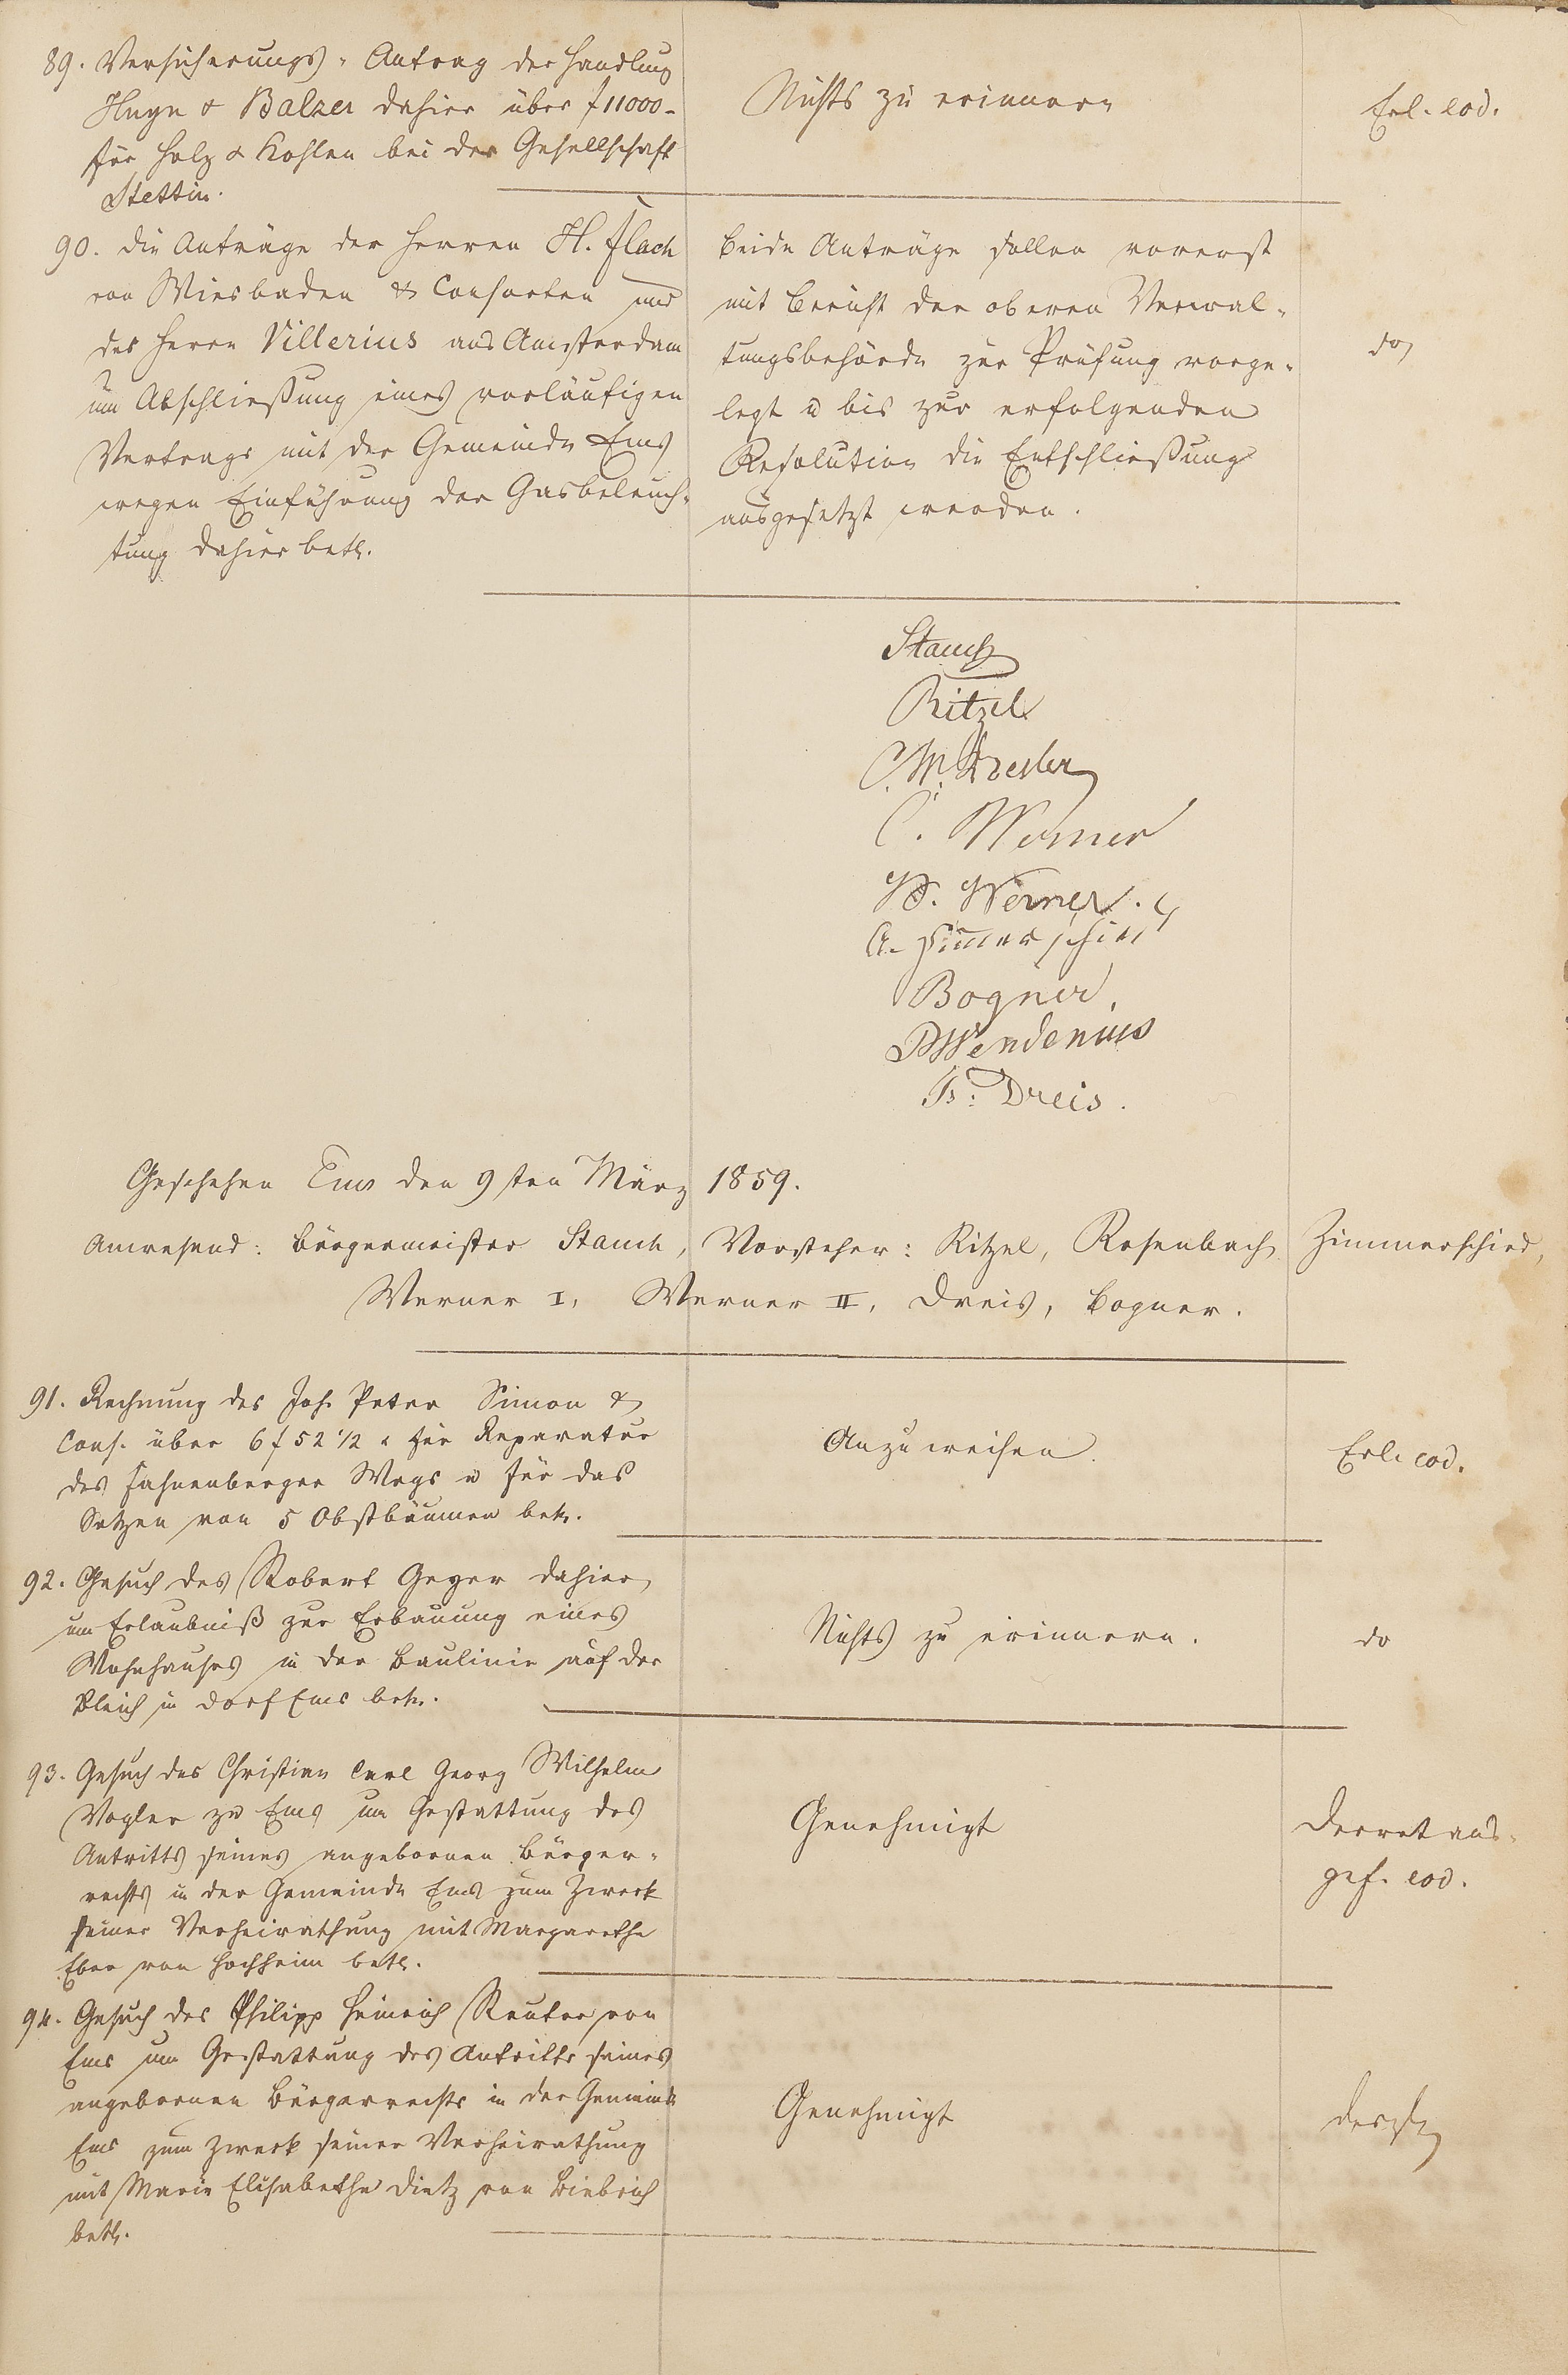 89. Versicherungs-Antrag der Handlung
Huyn & Balzer dahier über f 11000-
für Holz & Kohlen bei der Gesellschaft
Stettin.
Nichts zu erinnern
Erl. eod.
90. Die Anträge der Herren H. Flach
von Wiesbaden & Consorten und
des Herrn Villerius aus Amsterdam
um Abschließung eines vorläufigen
Vertrags mit der Gemeinde Ems
wegen Einführung der Gasbeleuch-
tung dahier betr.
Beide Anträge sollen vorerst
mit Bericht der oberen Verwal-
tungsbehörde zur Prüfung vorge-
legt u bis zur erfolgenden
Resolution die Entschließung
ausgesetzt werden.
do
Stauch
Ritzel
C. W. Dresler
C. Werner
W. Werner.
A. Zimmerschied
Bogner,
PWendenius
Fr: Dreis.
Geschehen Ems den 9ten März 1859.
Anwesend: Bürgermeister Stauch, Vorsteher: Ritzel, Rosenbach Zimmerschied,
Werner I, Werner II, Dreis, Bogner.
91. Rechnung des Joh. Peter Simon &
Cons. über 6 f 52 1/2 x für Reparatur
des Fahnenberger Wegs u für das
Setzen von 5 Obstbäumen betr.
Anzuweisen.
Erl. eod.
92. Gesuch des Robert Geyer dahier
um Erlaubniß zur Erbauung eines
Wohnhauses in der Baulinie auf der
Bleich in Dorf Ems betr.
Nichts zu erinnern.
do
93. Gesuch des Christian Carl Georg Wilhelm
Vogler zu Ems um Gestattung des
Antritts seines angebornen Bürger-
rechts in der Gemeinde Ems zum Zweck
seiner Verheirathung mit Margarethe
Eber von Hochheim betr.
Genehmigt
Decret aus-
gef. eod.
94. Gesuch des Philipp Heinrich Reuter von
Ems um Gestattung des Antritts seines
angebornen Bürgerrechts in der Gemeinde
Ems zum Zweck seiner Verheirathung
mit Marie Elisabethe Dietz von Biebrich
betr.
Genehmigt